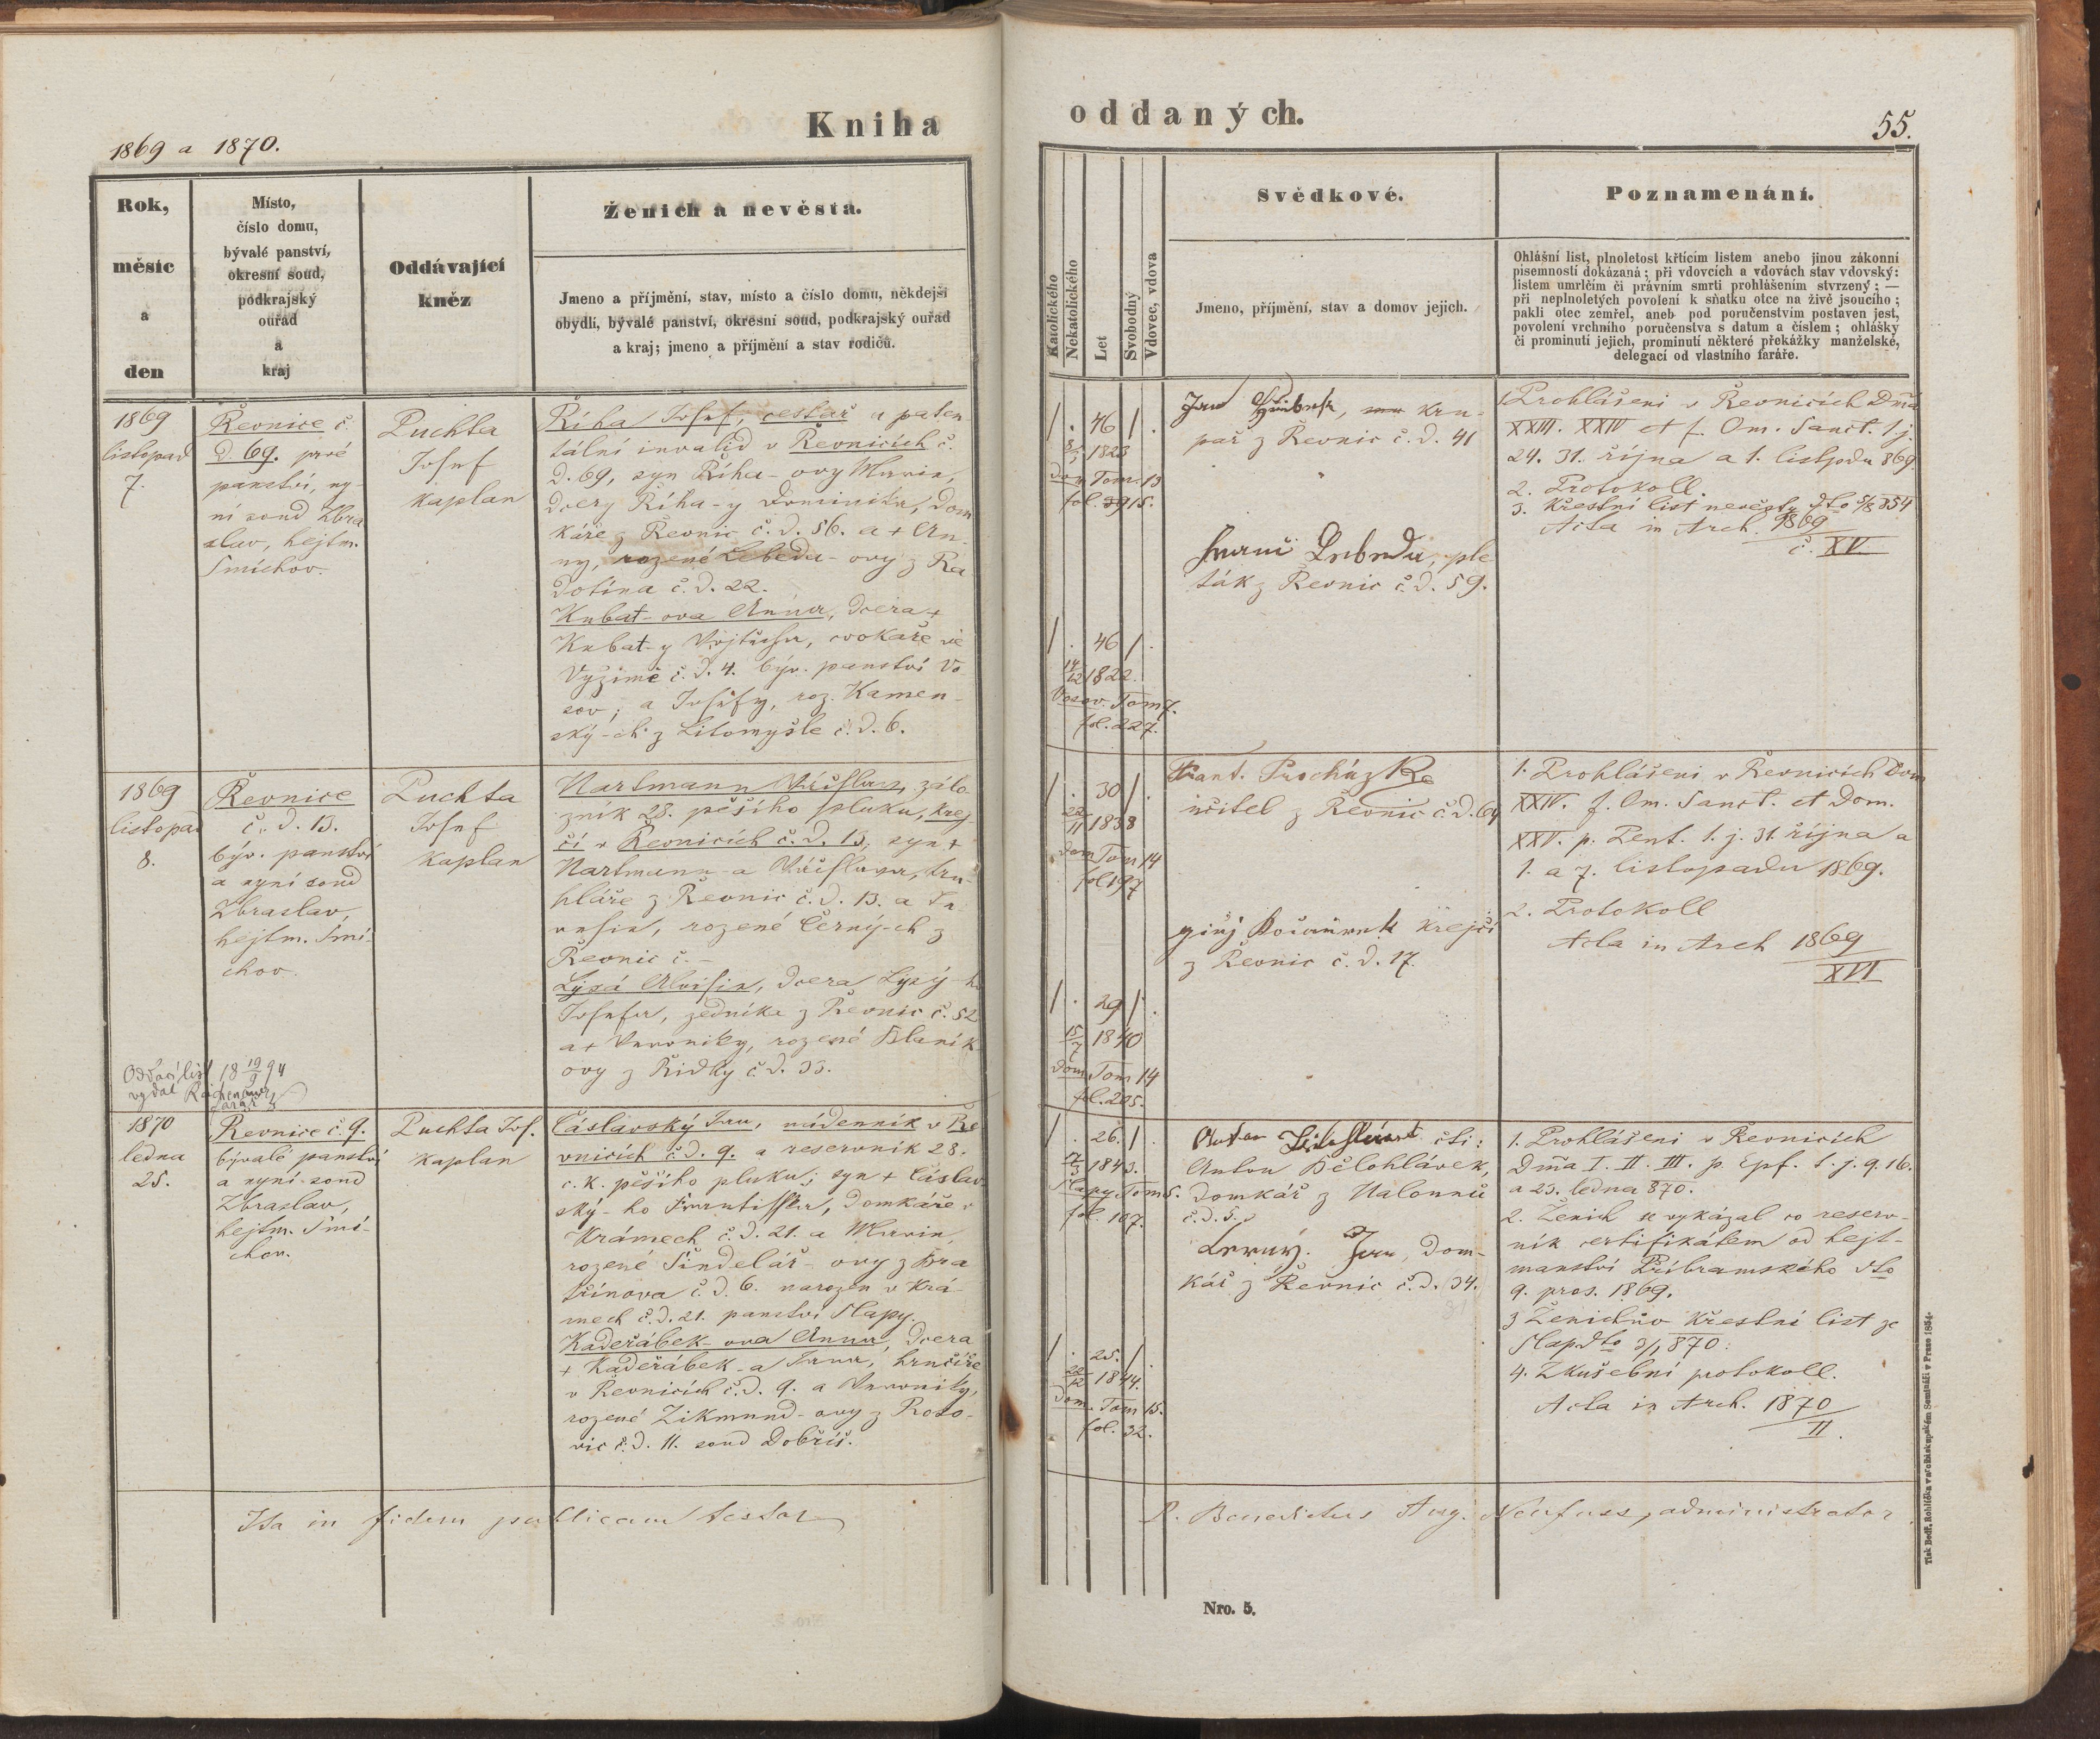 1869 a 1870.
Kniha
oddaných.
55.
Rok,
měsíc
a
den
Místo,
číslo domu,
bývalé panství,
okresní soud,
podkrajský
ouřad
a
kraj
Oddávající
kněz
Ženich a nevěsta.
Jmeno a příjmění, stav, místo a číslo domu, někdejší
obydlí, bývalé panství, okresní soud, podkrajský ouřad
a kraj; jmeno a příjmění a stav rodičů.
Katolického
Nekatolického
Let
Svobodný
Vdovec, vdova
Svědkové.
Jmeno, příjmění, stav a domov jejich.
Poznamenání.
Ohlášní list, plnoletost křtícím listem anebo jinou zákonní
písemností dokázaná; při vdovcích a vdovách stav vdovský:
listem umrlčím či právním smrti prohlášením stvrzený; —
při neplnoletých povolení k sňatku otce na živě jsoucího;
pakli otec zemřel, aneb pod poručenstvím postaven jest,
povolení vrchního poručenstva s datum a číslem; ohlášky
či prominutí jejich, prominutí některé překážky manželské,
delegací od vlastního faráře.
1869
listopad
7.
Řevnice č.
d. 69. prvé
panství, ny-
ní soud Zbra
slav, hejtm.
Smíchov.
Puchta
Josef
kaplan
Říha Josef, cestář a paten
tální invalid v Řevnicích č.
d. 69, syn Říha-ovy Marie,
dcery Říha-y Dominika, dom
káře z Řevnic č. d. 56. a + An-
ny, rozené Lebeda-ovy z Ra
dotína č. d. 22.
Kubat-ova Anna, dcera +
Kubat-y Vojtěcha, cvokaře ve
Vyžimě č. d. 4. býv. panství Vo
sov; a Josefy, roz. Kamen-
ský-ch z Litomyšle č. d. 6.
/ . 46 / .
1823
Tom. 13
fol. 15.
/ . 46 / .
14/12 1822.
Vosov. Tom 7.
fol. 227.
Jan, kru-
pař z Řevnic č. d. 41
Lebeda, ple
ták z Řevnic č. d. 59.
1. Prohlášení v Řevnicích Dma
XXIII. XXIV et f. Om. Sanct. t. j.
24. 31. října a 1. listopdu 869.
2. Protokoll.
3. Křestní list nevěsty dto 5/8 854
Acta in Arch. 1869
č. XV
1869
listopad
8.
Řevnice
č. d. 13.
býv. panství
a nyní soud
Zbraslav,
hejtm. Smí-
chov.
Puchta
Josef
kaplan
Hartmann Václav, zálo
žník 28. pěšího pluku, krej
čí v Řevnicích č. d. 13, syn +
Hartmann-a Václava, tru-
hláře z Řevnic č. d. 13. a Te
resie, rozené Černý-ch z
Řevnic č. –
Lysá Aloisie, dcera Lysý-ho
Josefa, zedníka z Řevnic č. 52
a + Veroniky, rozené Blaník
ovy z Řidky č. d. 33.
/ . 30 / .
22/11 1838
dom Tom 14
fol 197
/ . 29 / .
15/7 1840
Dom Tom 14
fol. 205.
Frant. Procházka
učitel z Řevnic č. d. 64
krejčí
z Řevnic č. d. 17.
1. Prohlášení v Řevnicích Dom
XXIV. f. Om. Sanct. et Dom.
XXV. p. Pent. t. j. 31 října a
1. a 7. listopadu 1869.
2. Protokoll
Acta in Arch 1869
XVI
Oddací list 18 19/9 94
vydal
farář
1870
ledna
25.
Řevnice č. 9.
bývalé panství
a nyní soud
Zbraslav,
hejtm. Smí-
chov.
Puchta Jos.
kaplan
Čáslavský Jan, nádenník v Ře
vnicích č. d. 9. a reservník 28.
c. k. pěšího pluku; syn + Čáslav
ský-ho Františka, domkáře v
Krámech č. d. 21. a Marie,
rozené Šindelář-ovy z Bra
třínova č. d. 6. narozen v Krá-
mech č. d. 21. panství Slapy.
Kadeřábek-ova Anna, dcera
+ Kadeřábek-a Jana, hrnčíře
v Řevnicích č. d. 9. a Veroniky,
rozené Zikmund-ovy z Roto-
vic č. d. 11. soud Dobříš.
/ . 26. / .
1843.
Slapy Tom 5.
fol. 107.
/ . 25. / .
22/12 1844.
Dom. Tom 15.
fol. 32.
čti:
Anton Bělohlávek,
domkář z Halounů
č. d. 5.
Černý Jan, dom-
kář z Řevnic č. d. 34.
1. Prohlášení v Řevnicích
Dma I. II. III. p. Epf. t. j. 9. 16.
a 23. ledna 870.
2. Ženich se vykázal co reserv-
ník certifikátem od hejt-
manství Příbramského dto
9. pros. 1869.
3 Ženichův křestní list ze
Slap dto 3/1 870.
4. Zkušební protokoll.
Acta in Arch. 1870
II.
Ita in fidem publicam testor
P. Benedictus Aug. Neufuss, administrator
Nro. 5.
Tisk Bedř. Rohlíčka v arcibiskupském Semináři v Praze 1854.